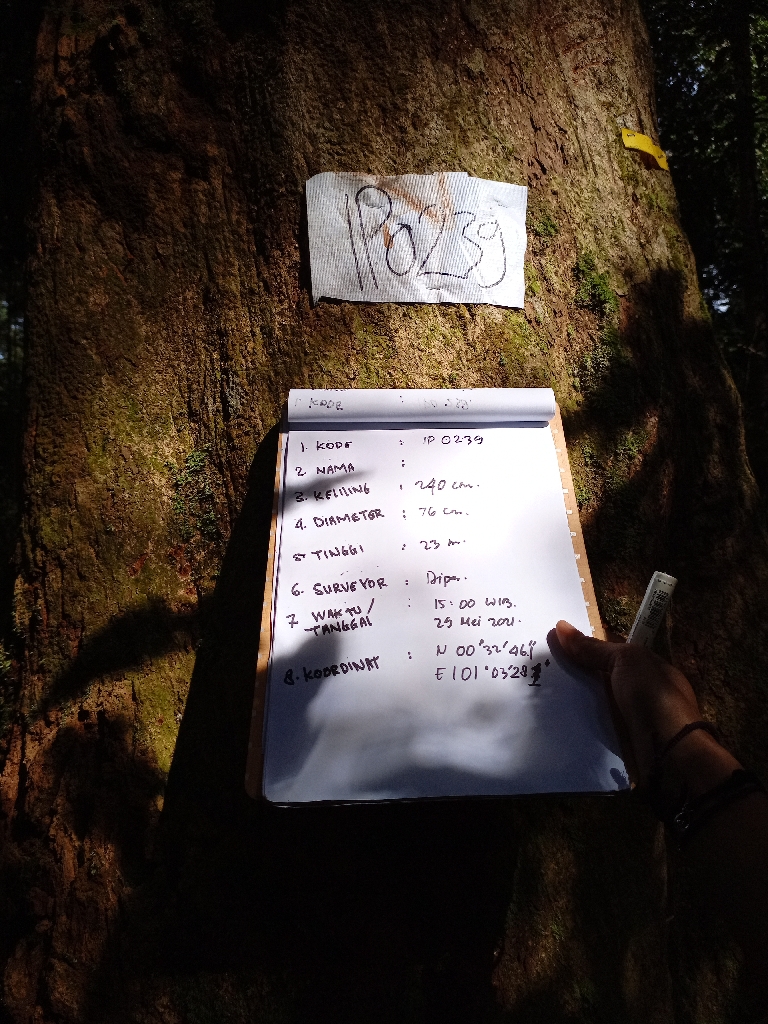 IP0239
KODE :
1. KODE : IP 0239
2. NAMA :
3. KELILING : 240 cm.
4. DIAMETER : 76 cm.
5. TINGGI : 23 m.
6. SURVEYOR : Dipa.
7 WAKTU/ : 15:00 WIB.
TANGGAL 29 Mei 2021.
8. KOORDINAT : N 00°32'46.
E 101°03'28